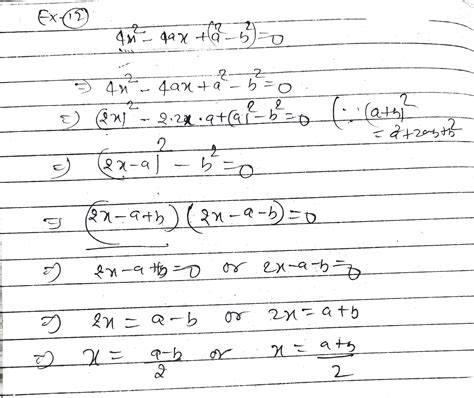 Ex-(12)
4x² - 4ax + (a² - b²) = 0
=> 4x² - 4ax + a² - b² = 0
=> (2x)² - 2·2x·a + (a)² - b² = 0 (∵ (a+b)²
= a² + 2ab + b²
=> (2x-a)² - b² = 0
=> (2x-a+b) (2x-a-b) = 0
=> 2x-a+b=0 or 2x-a-b=0
=> 2x = a-b or 2x = a+b
=> x = (a-b)/2 or x = (a+b)/2